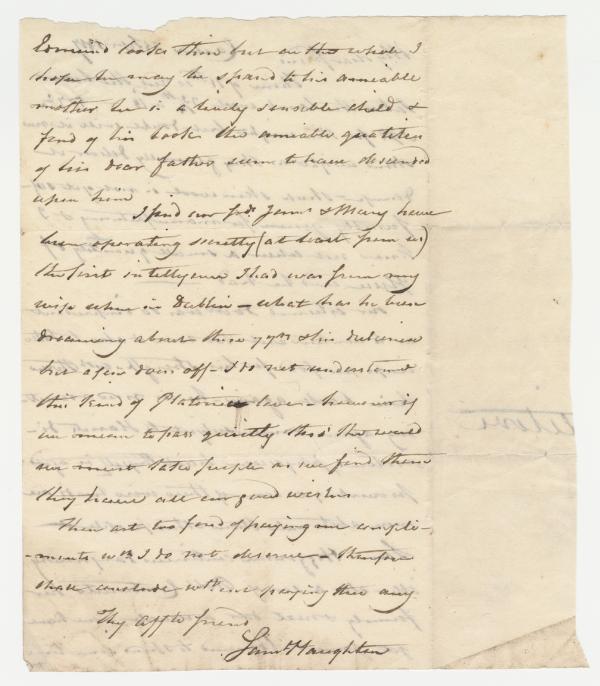 Edmund looks thin but on the whole I
hope he may be spared to his amiable
mother he is a lively sensible child &
fond of his book the amiable qualities
of his dear father seem to have descended
upon him
I find our frds James & Mary have
been operating secretly (at least from us)
the first intelligence I had was from my
wife when in Dublin – what has he been
dreaming about these 7 yrs & his dulcinea
but a few doors off – I do not understand
this kind of Platonic love – however if
we mean to pass quietly thro' the world
we must take people as we find them
they have all our good wishes
Thou art too fond of paying me compli-
-ments wch I do not deserve – therefore
shall conclude wthout paying thee any
Thy afft friend
Saml Haughton